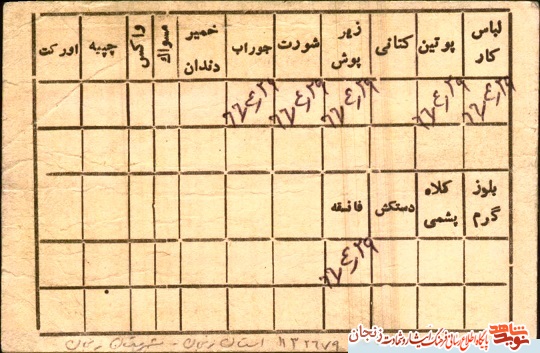 لباس کار پوتین کتانی زیر پوش شورت جوراب خمیر دندان مسواك واکس چپیه اورکت
۶۶/۴/۲۹ ۶۶/۴/۲۹ ۶۶/۴/۲۹ ۶۶/۴/۲۹ ۶۶/۴/۲۹
بلوز گرم کلاه پشمی دستکش فانسقه
۶۶/۴/۲۹
۱۱۳۲۶۷۹ استان زنجان - شهرستان زنجان
نوید شاهد پایگاه اطلاع رسانی فرهنگ ایثار و شهادت زنجان